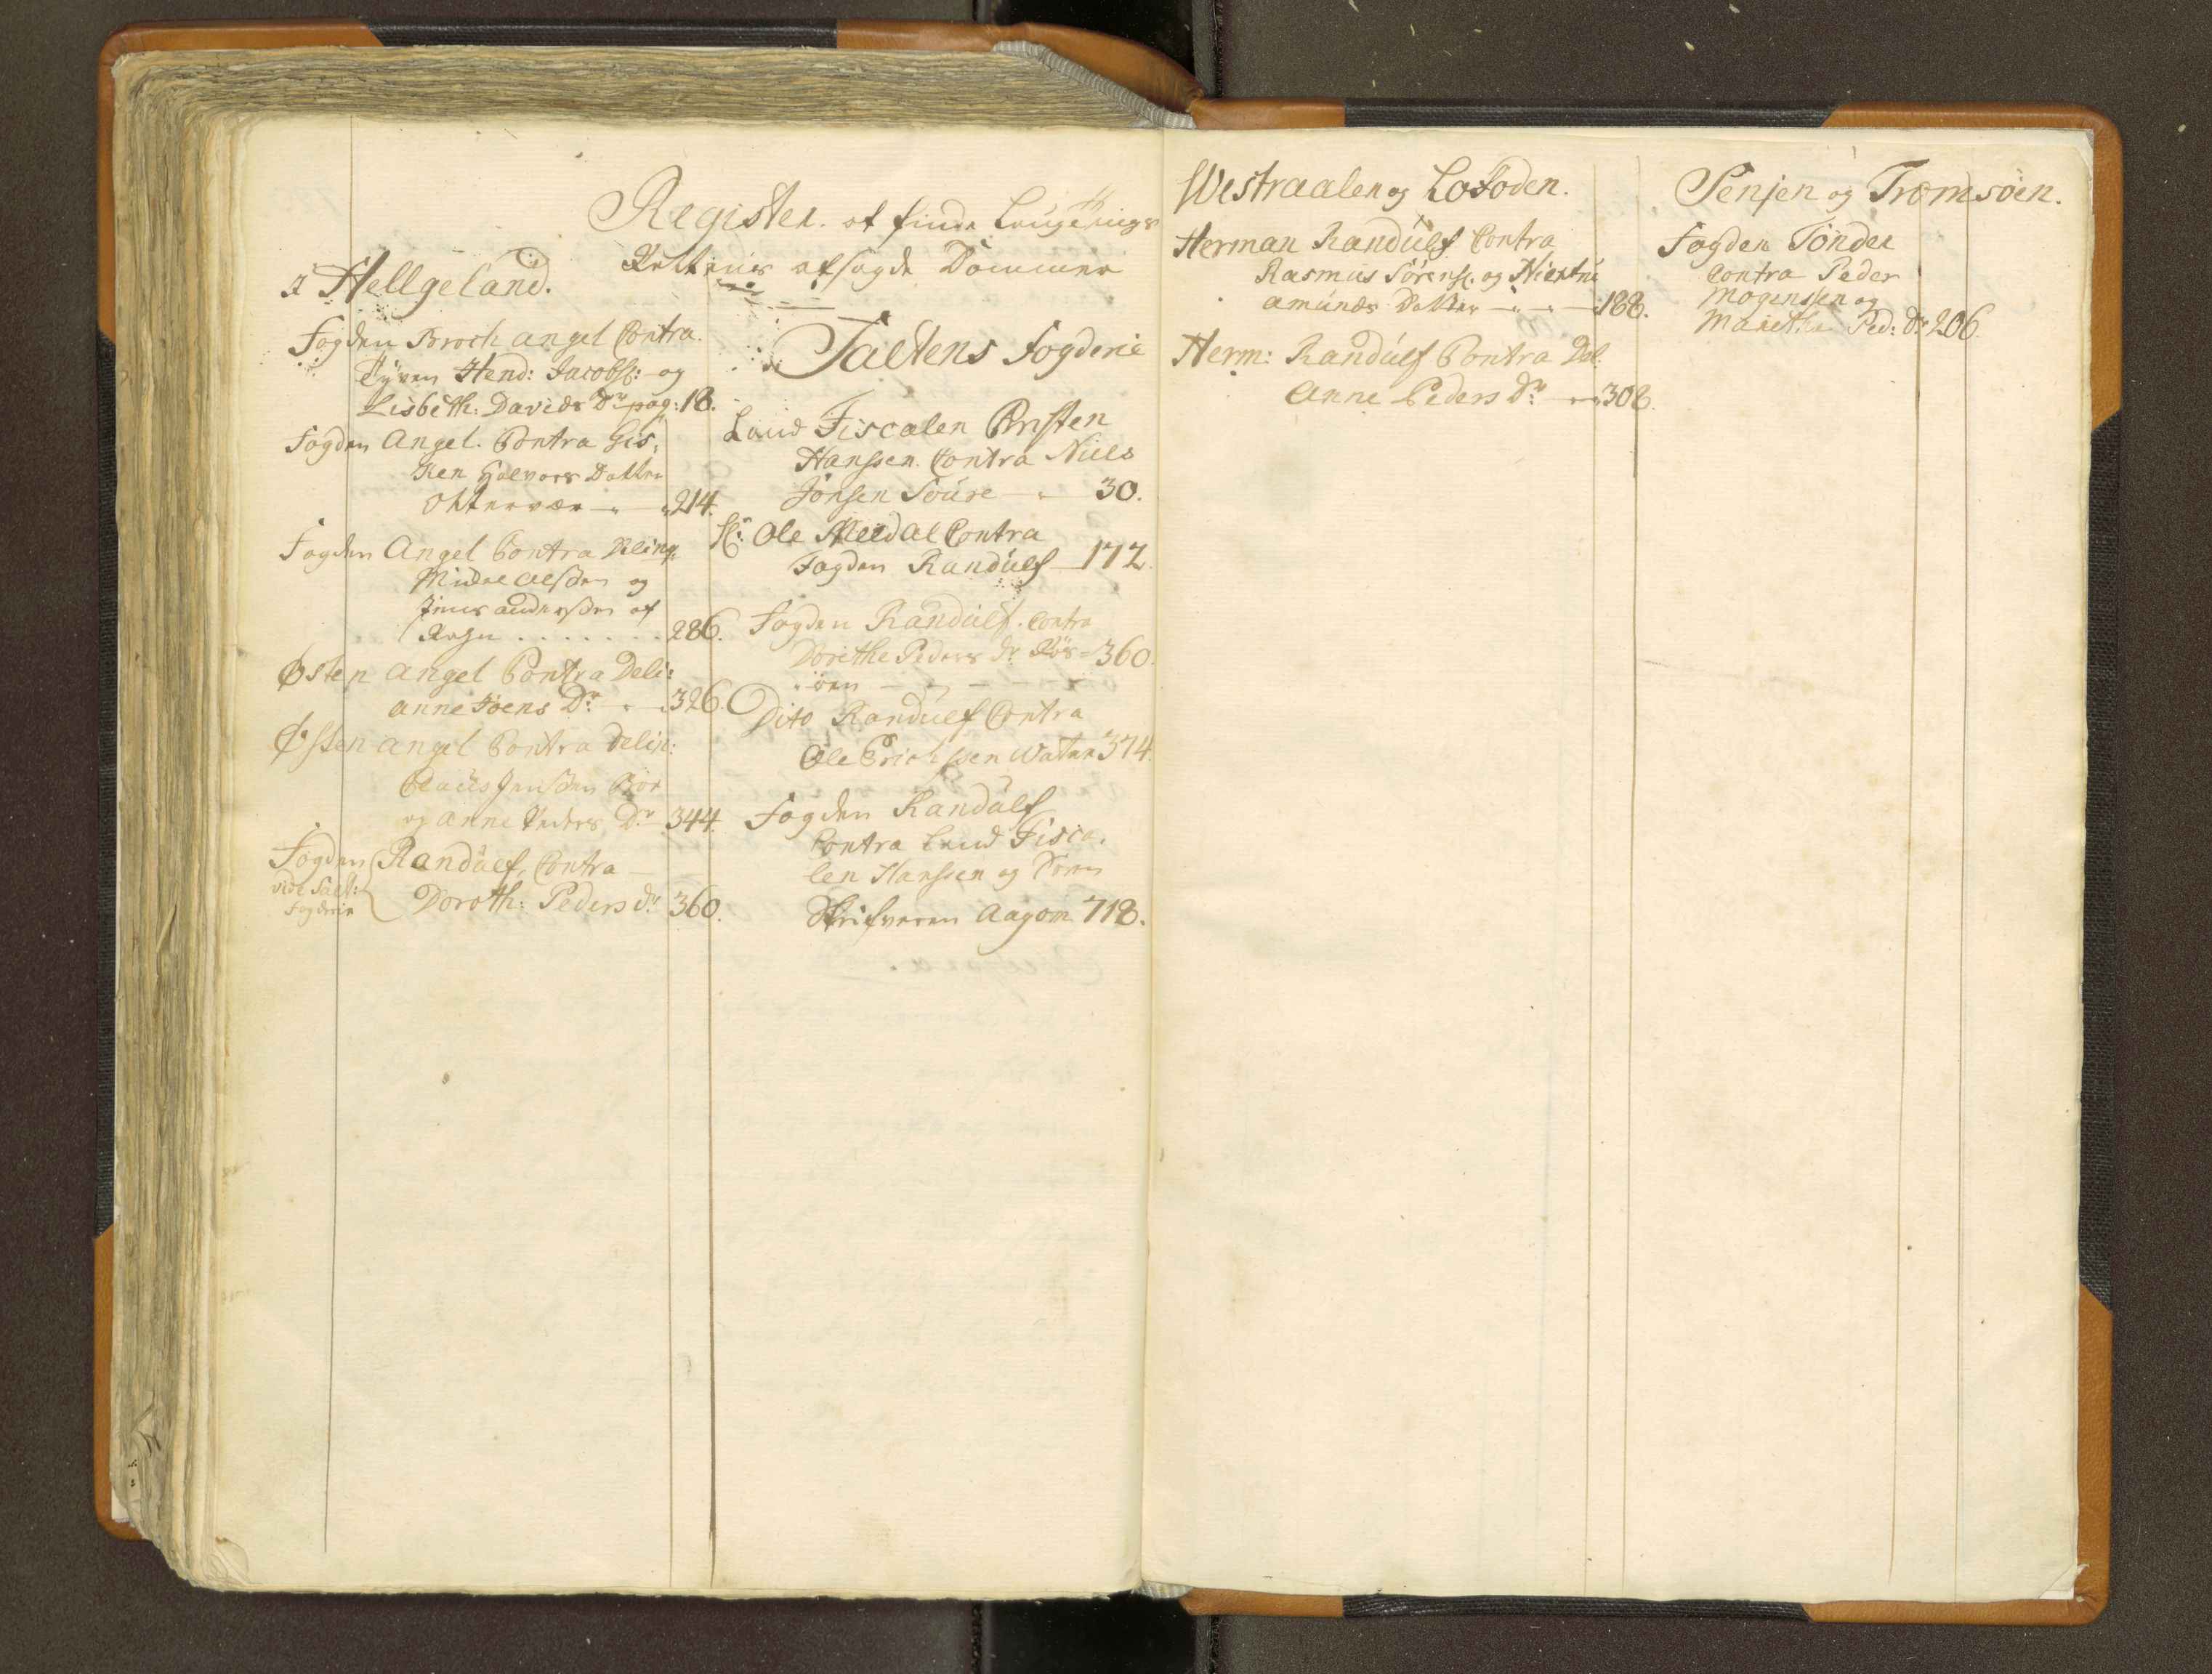 Register. at finde Laugtings
Rettens afsagde Dommer
I Hellgeland.
Fogden Broch angel Contra.
Tyven Hend: Jacobß: og
Lisbeth: Davids Dr pag: 18.
Fogden Angel. Contra Gis,
Ken Halvors Datter
214.
Fogden Angel Contra Delinq:
Olßen og
Jens anderßen af
286.
Østen Angel Contra Deli:
anne Joens Dr. 326.
Østen angel Contra Delin:
Claus Jenßen
og anne Peders Dr 344.
Fogden Randulf, Contra
vide Salt:
Fogderie
Doroth: Peders dr 360.
Saltens Fogderie
Land Fiscalen Christen
Hanssen. Contra Niels
Jonsen 30.
Sr. Ole Meldal Contra
Fogden Randulf 172.
Fogden Randulf. Contra
Dorethe Peders dr. Rös= 360.
öen
Dito Randulf Contra
Ole Erichssen Watne 374.
Fogden Randulf
Contra Land Fisca,
len Hanssen og Soren
Skrifveren Aagom 718.
Westraalen og Lofoden.
Herman Randulf Contra
Rasmus Sörenß. og
amunds Datter 188.
Herm: Randulf Contra Del.
Anne Peders Dr. 308.
Senjen og Tromsöen.
Fogden Tönder
Contra Peder
Mogenssen og
Marethe Ped: Dr 206.